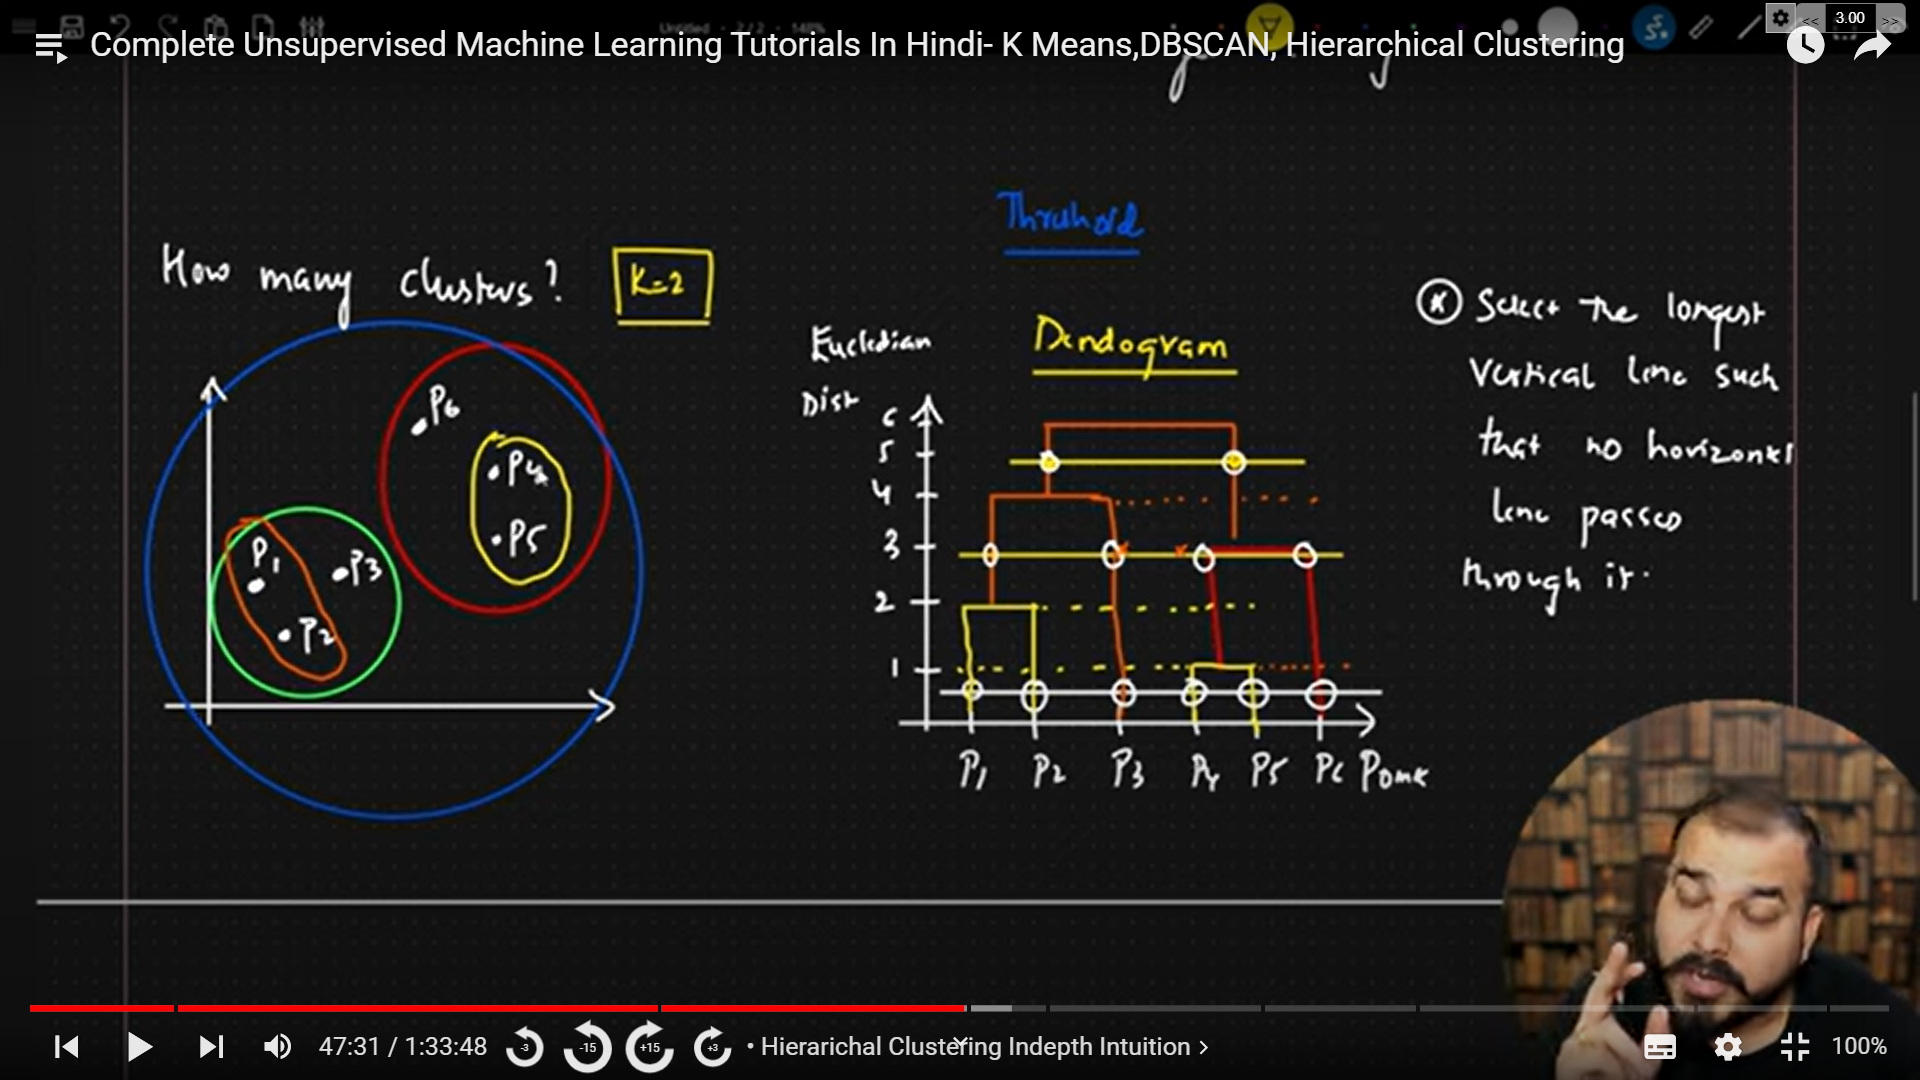 3.00
Complete Unsupervised Machine Learning Tutorials In Hindi- K Means,DBSCAN, Hierarchical Clustering
Threshold
How many clusters?
K=2
Eucledian
Dist
Dendogram
6
5
4
3
2
1
P1 P2 P3 P4 P5 P6
P6
P4
P5
P1
P3
P2
* Select The longest
Vertical line such
that no horizontal
line passes
through it.
47:31 / 1:33:48
-3
-15
+15
+3
• Hierarichal Clustering Indepth Intuition >
100%